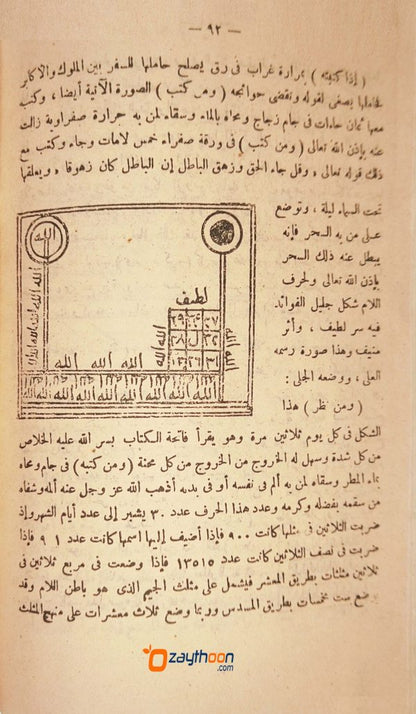 — ٩٢ —
( إذا كتبته ) بمرارة غراب فى رق يصلح حاملها للسفر بين الملوك والأكابر
فحاملها يصغى لقوله وتقضى حوائجه ( ومن كتب ) الصورة الآتية أيضا ، وكتب
معها ثمان حاءات فى جام زجاج ومحاه بالماء وسقاء لمن به حرارة صفراوية زالت
عنه بإذن الله تعالى ( ومن كتب ) فى ورقة صفراء خمس لامات وجاء وكتب مع
ذلك قوله تعالى ، وقل جاء الحق وزهق الباطل إن الباطل كان زهوقا ، ويعلقها
تحت السماء ليلة ، وتوضع
على من به السحر فإنه
يبطل عنه ذلك السحر
بإذن الله تعالى ولحرف
اللام شكل جليل الفوائد
فيه سر لطيف ، وأثر
منيف وهذا صورة رسمه
العلى ، ووضعه الجلى :
( ومن نظر ) هذا
الله
لطيف
الله الله الله الله
الشكل فى كل يوم ثلاثين مرة وهو يقرأ فاتحة الكتاب يسر الله عليه الخلاص
من كل شدة وسهل له الخروج من الخروج من كل محنة ( ومن كتبه ) فى جام ومحاه
بماء المطر وسقاء لمن به ألم فى نفسه أو فى بدنه أذهب الله عز وجل عنه ألمه وشفاه
من سقمه بفضله وكرمه وعدد هذا الحرف عدد ٣٠ يشير إلى عدد أيام الشهر وإذ
ضربت الثلاثين فى مثلها كانت ٩٠٠ فإذا أضيف إليها اسمها كانت عدد ٩١ فإذا
ضربت فى نصف الثلاثين كانت عدد ١٣٥١٥ فإذا وضعت فى مربع ثلاثين فى
ثلاثين مثلثات بطريق المعشر فيشمل على مثلث الجيم الذى هو باطن اللام وقد
وضع ست مخمسات بطريق المسدس وربما وضع ثلاث معشرات على منهج المثلث
zaythoon
.com